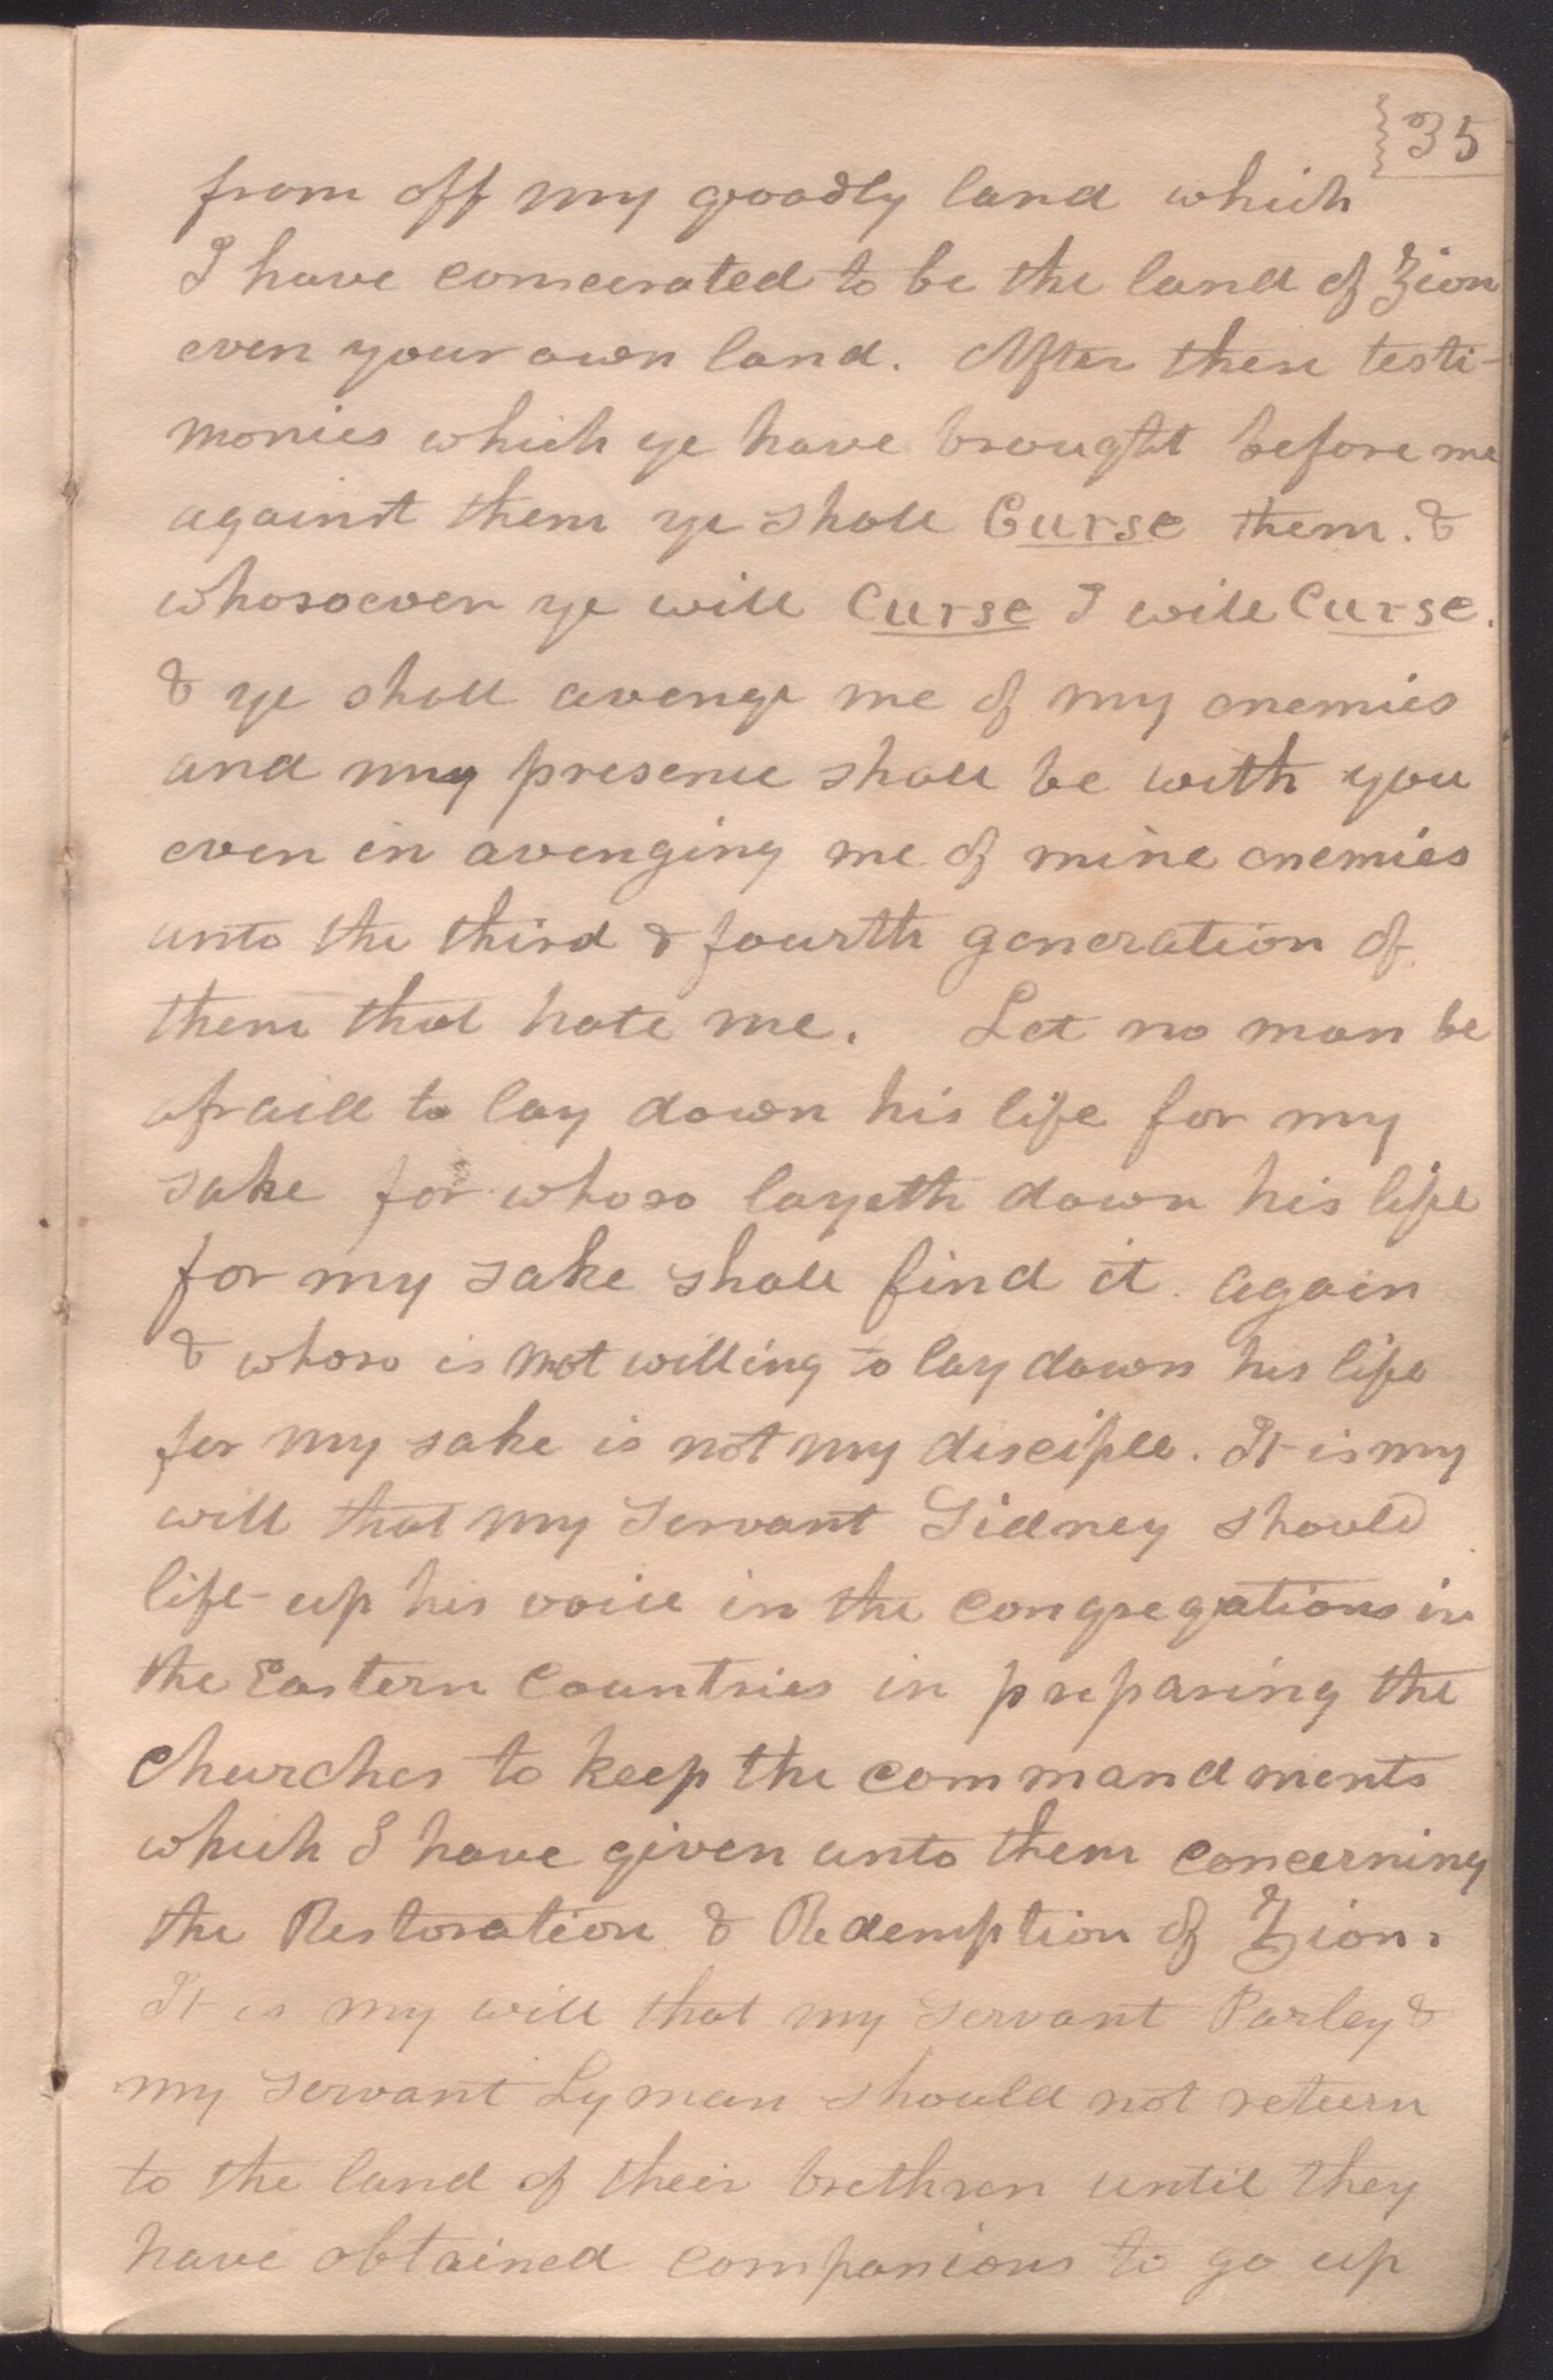 35
from off my goodly land which
I have consecrated to be the land of Zion
even your own land. After these testi-
monies which ye have brought before me
against them ye shall Curse them. &
whosoever ye will Curse I will Curse.
& ye shall avenge me of my enemies
and my presence shall be with you
even in avenging me of mine enemies
unto the third & fourth generation of
them that hate me. Let no man be
afraid to lay down his life for my
sake for whoso layeth down his life
for my sake shall find it again
& whoso is not willing to lay down his life
for my sake is not my disciple. It is my
will that my Servant Sidney should
life up his voice in the congregations in
the Eastern Countries in preparing the
Churches to keep the commandments
which I have given unto them concerning
the Restoration & Redemption of Zion.
It is my will that my servant Parley &
my servant Lyman should not return
to the land of their brethren until they
have obtained companions to go up